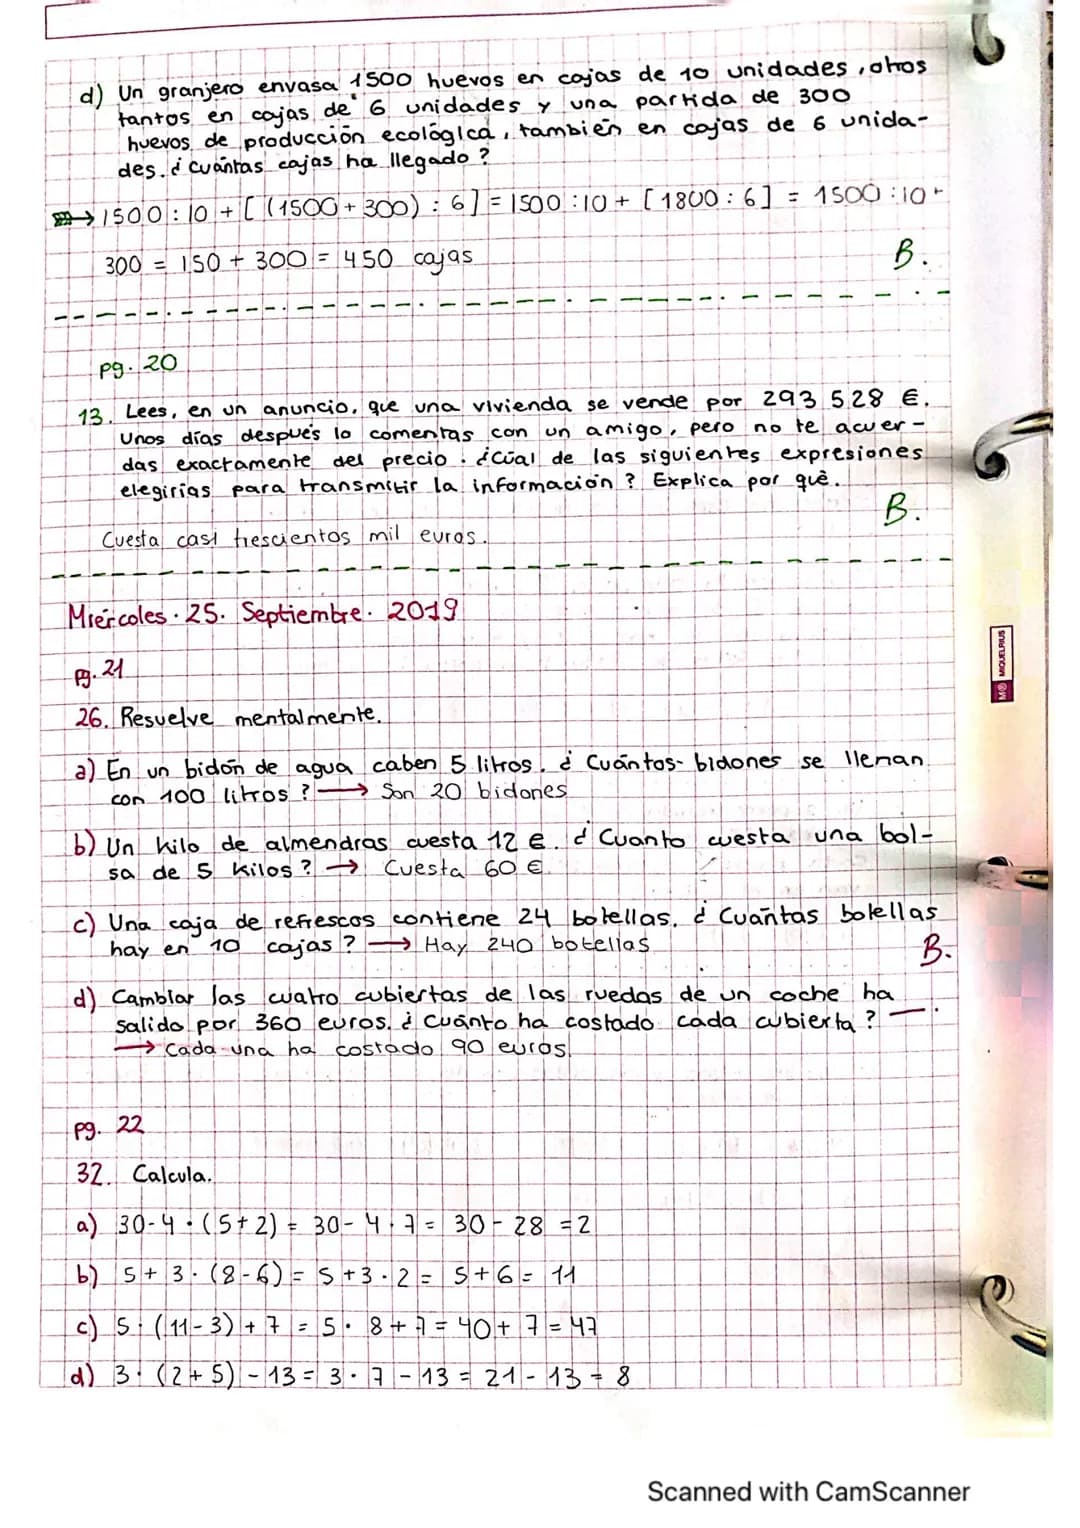 d) Un granjero envasa 1500 huevos en cajas de 10 unidades, otros
tantos en cajas de 6 unidades y una partida de 300
huevos de producción ecológica, también en cajas de 6 unida-
des. ¿Cuántas cajas ha llegado?
→ 1500 : 10 + [ (1500 + 300) : 6 ] = 1500 : 10 + [ 1800 : 6 ] = 1500 : 10 +
300 = 150 + 300 = 450 cajas
B.
pg. 20
13. Lees, en un anuncio, que una vivienda se vende por 293 528 €.
Unos días después lo comentas con un amigo, pero no te acuer-
das exactamente del precio. ¿Cúal de las siguientes expresiones
elegirías para transmitir la información? Explica por qué.
B.
Cuesta casi trescientos mil euros.
Miércoles · 25 · Septiembre · 2019
pg. 21
26. Resuelve mentalmente.
a) En un bidón de agua caben 5 litros. ¿Cuántos bidones se llenan
con 100 litros? → Son 20 bidones
b) Un kilo de almendras cuesta 12 €. ¿Cuanto cuesta una bol-
sa de 5 kilos? → Cuesta 60 €
c) Una caja de refrescos contiene 24 botellas. ¿Cuántas botellas
hay en 10 cajas? → Hay 240 botellas
B.
d) Cambiar las cuatro cubiertas de las ruedas de un coche ha
salido por 360 euros. ¿Cuánto ha costado cada cubierta?
→ Cada una ha costado 90 euros.
pg. 22
32. Calcula.
a) 30 - 4 · (5 + 2) = 30 - 4 · 7 = 30 - 28 = 2
b) 5 + 3 · (8 - 6) = 5 + 3 · 2 = 5 + 6 = 11
c) 5 · (11 - 3) + 7 = 5 · 8 + 7 = 40 + 7 = 47
d) 3 · (2 + 5) - 13 = 3 · 7 - 13 = 21 - 13 = 8
MIQUELRIUS
Scanned with CamScanner